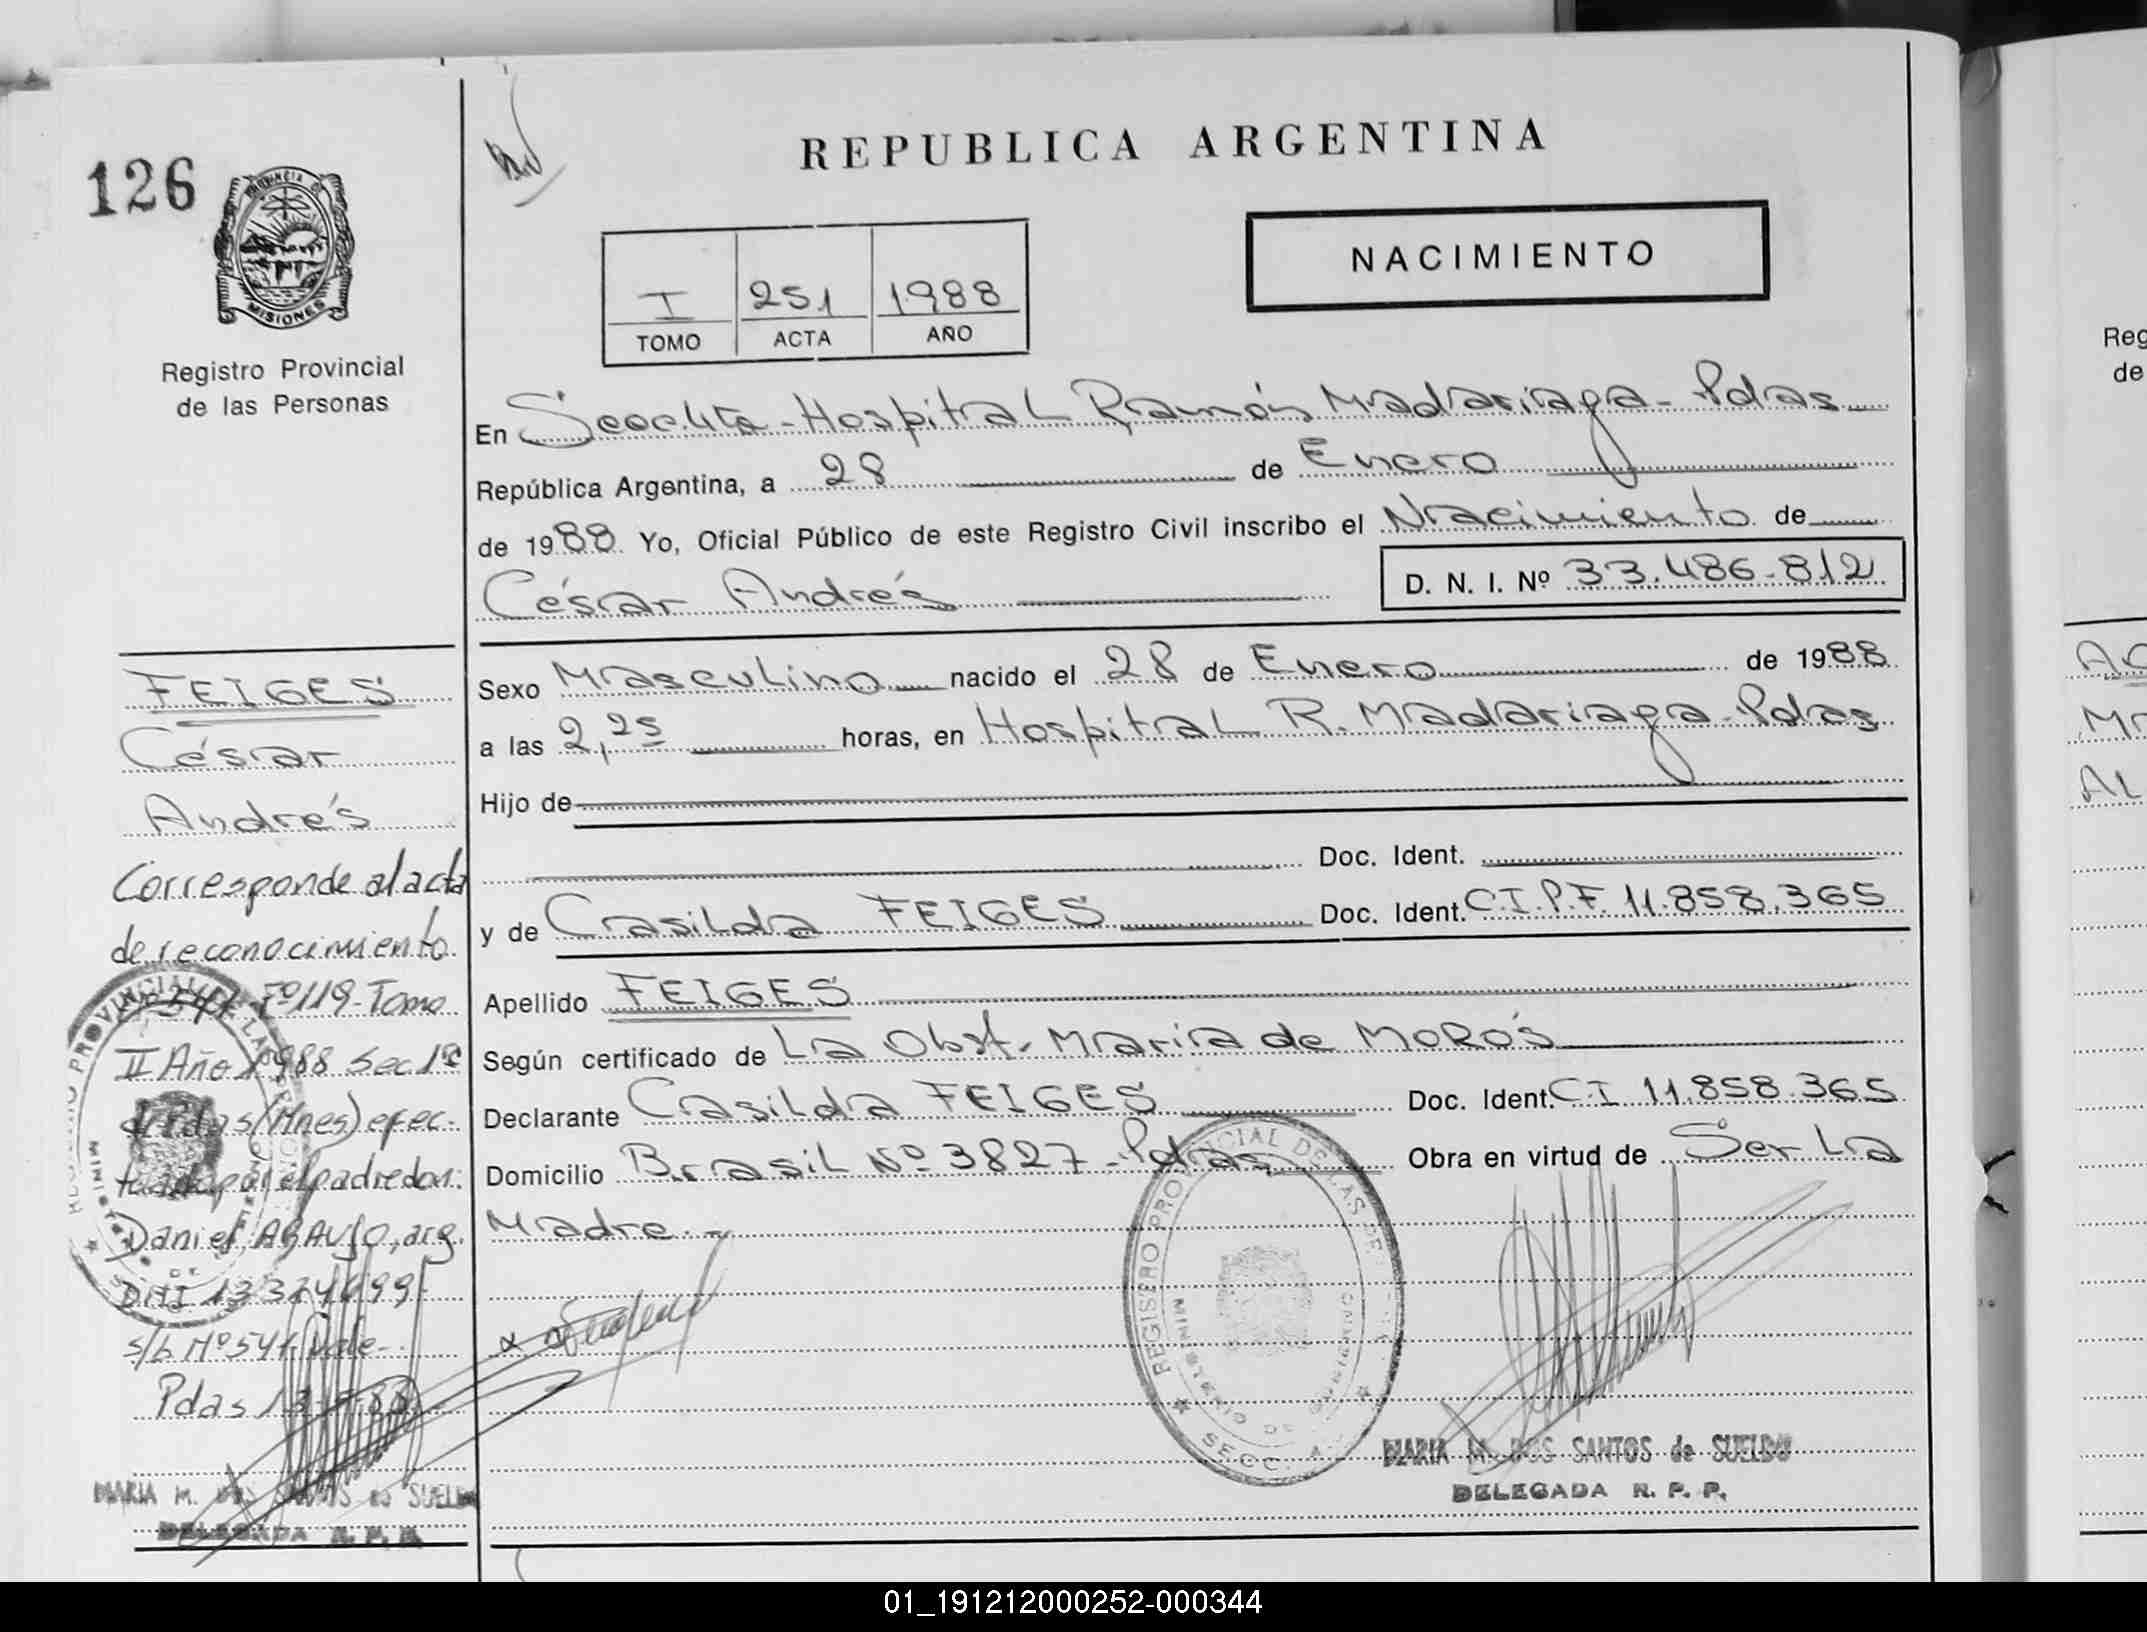 126
PROVINCIA DE
MISIONES
Registro Provincial
de las Personas
FEIGES
César
Andrés
Corresponde al acta
de reconocimiento
Fº 119 - Tomo
II Año 1988 Sec 1ª
Pdas (Mnes) efec-
tuada por el padre don:
Daniel ARAUJO, arg.
DNI
s/b Nº 541 Vale -
Pdas
MARIA M. DOS SANTOS de SUELDO
DELEGADA R. P. P.
REPUBLICA ARGENTINA
I 251 1988
TOMO ACTA AÑO
NACIMIENTO
En Secc. 4ta - Hospital Ramón Madariaga - Pdas
República Argentina, a 28 de Enero
de 1988 Yo, Oficial Público de este Registro Civil inscribo el Nacimiento de
César Andrés D. N. I. Nº 33.486.812
Sexo Masculino nacido el 28 de Enero de 1988
a las 2,25 horas, en Hospital R. Madariaga - Pdas
Hijo de
Doc. Ident.
y de Casilda FEIGES Doc. Ident. C.I.P.F. 11.858.365
Apellido FEIGES
Según certificado de La Obst. Maria de MOROS
Declarante Casilda FEIGES Doc. Ident. C.I 11.858.365
Domicilio Brasil Nº 3827 - Pdas Obra en virtud de Ser La
Madre. -
REGISTRO PROVINCIAL DE LAS PE
MINISTERIO DE GOBIERNO
SECC.
MARIA M. DOS SANTOS de SUELDO
DELEGADA R. P. P.
Reg
de
01_191212000252-000344